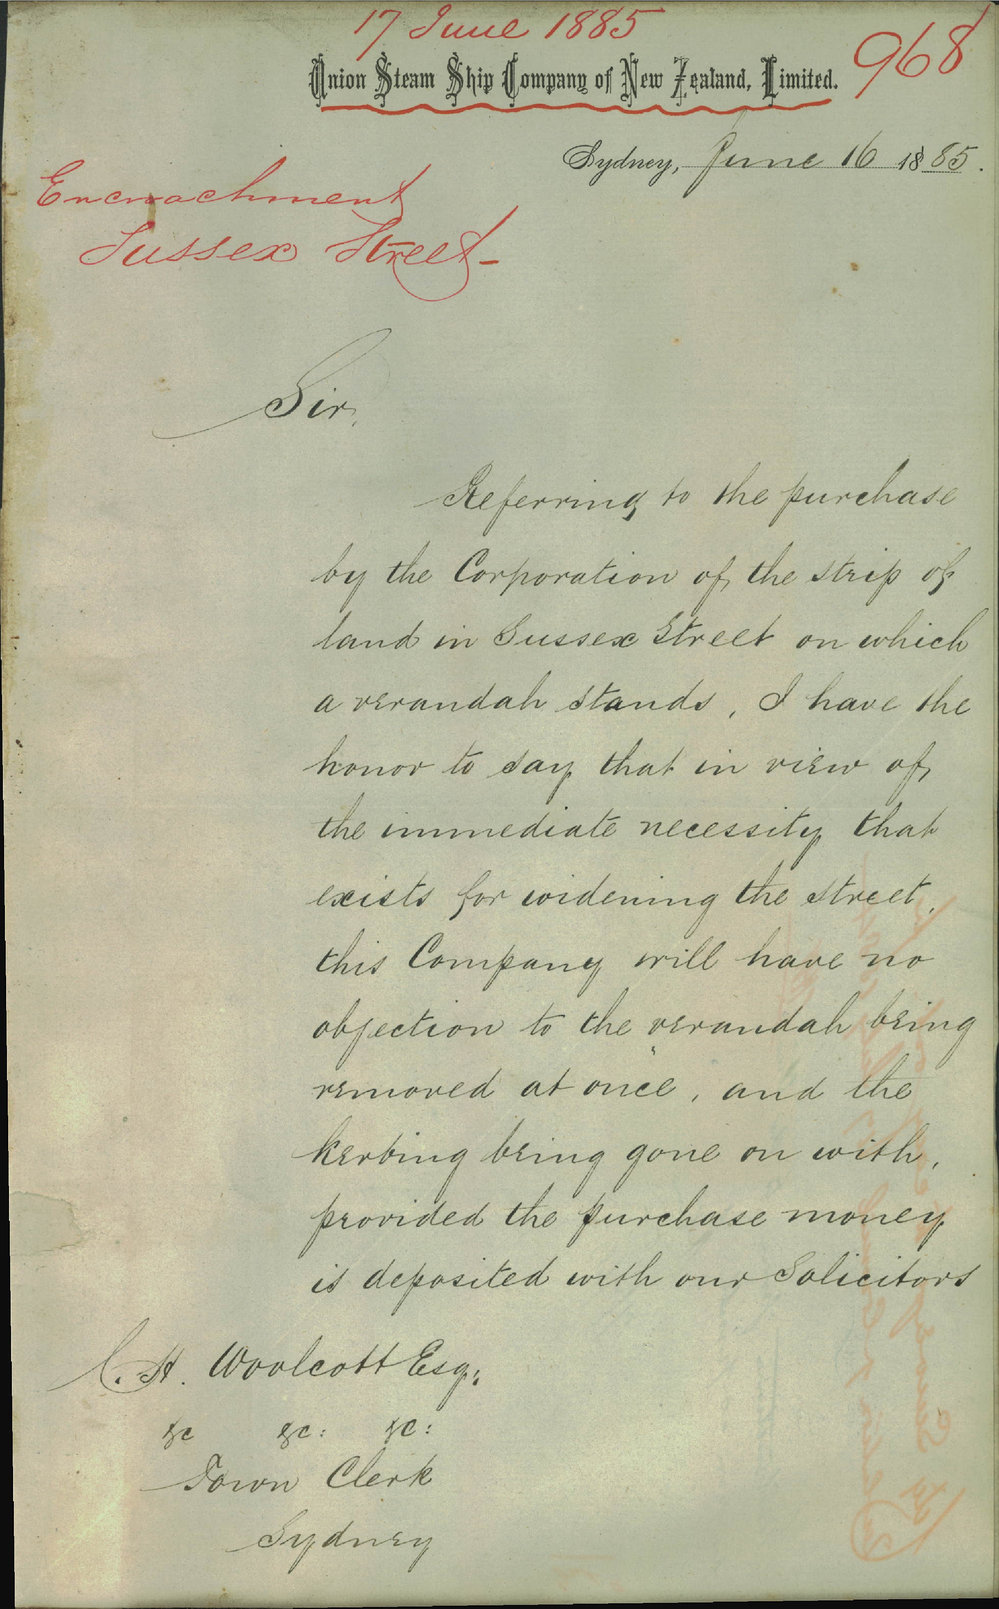 17 June 1885
968
Union Steam Ship Company of New Zealand, Limited.
Sydney, June 16 1885.
Encroachment
Sussex Street -
Sir,
Referring to the purchase
by the Corporation of the strip of
land in Sussex Street on which
a verandah stands, I have the
honor to say that in view of
the immediate necessity that
exists for widening the street,
this Company will have no
objection to the verandah being
removed at once, and the
kerbing being gone on with,
provided the purchase money
is deposited with our Solicitors
C. H. Woolcott Esq:
&c &c: &c:
Town Clerk
Sydney